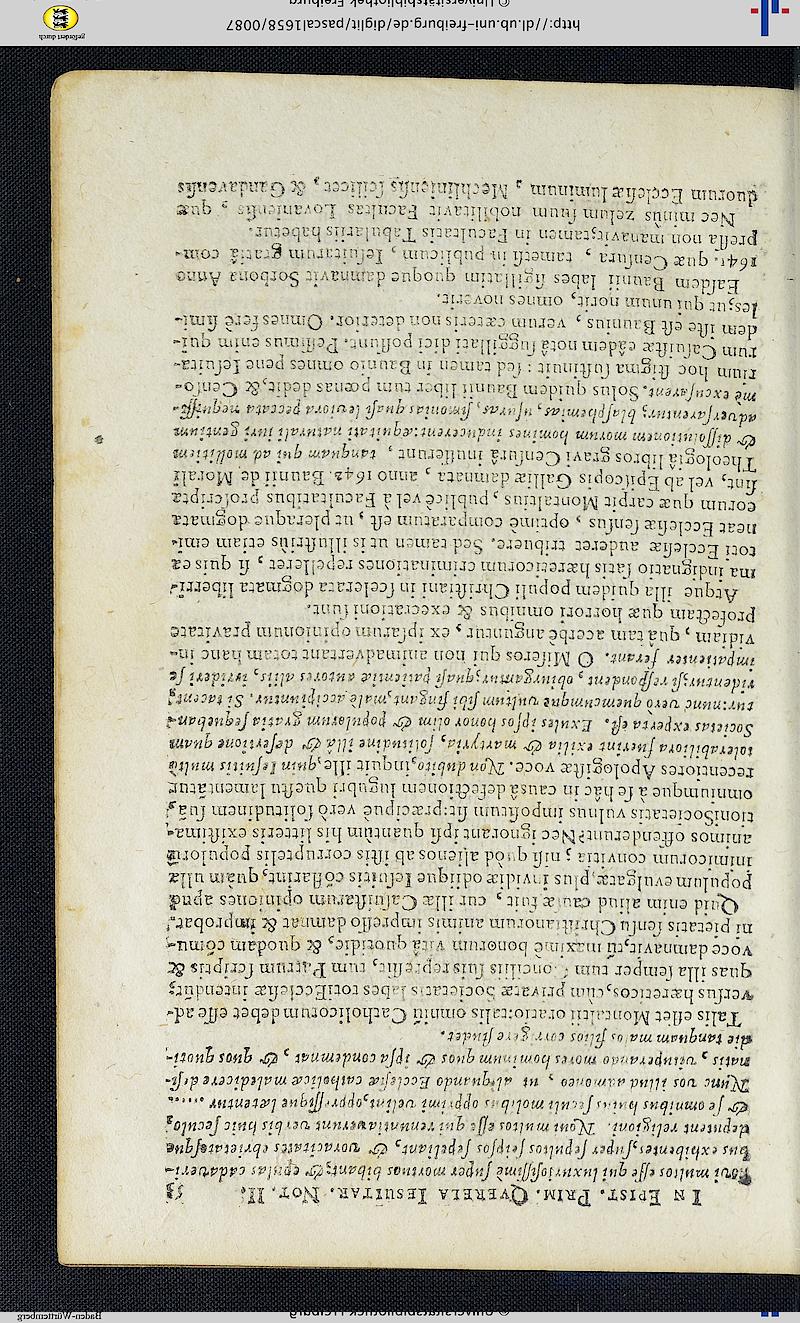 IN EPIST. PRIM. QVERELA IESUITAR. NOT. II. 53
Novi multos esse qui luxuriosissimè super mortuos bibant, & epulas cadaveri-
bus exhibentes, super sepultos seipsos sepeliant, & voracitates ebrietatesque
deputent religioni. Novi multos esse qui renuntiaverunt verbis huic seculo,
& se omnibus hujus seculi molibus opprimi velint, oppressique lætentur
Nunc vos illud admoneo, ut aliquando Ecclesiæ catholicæ maledicere desi-
natis, vituperando mores hominum quos & ipsa condemnat, & quos quoti-
die tanquam malos filios corrigere studet.
Talis esset Montaltii oratio: talis omniũ Catholicorum debet esse ad-
versus hæreticos, cùm privatæ Societatis labes toti Ecclesiæ intendunt,
quas illa semper tum Conciliis suis repressit, tum Patrum scriptis &
voce damnavit, tũ maximè bonorum vitâ quotidie, & quodam cõmu-
ni pietatis sensu Christianorum animis impresso damnat & improbat.
Quid enim aliud causæ fuit, cur illæ Casuistarum opiniones apud
populum evulgatæ, plus invidiæ odiique Iesuitis cõflarint, quàm ulla
inimicorum convitia; nisi quòd alienos ab istis corruptelis populorũ
animos offenderunt? Nec ignorant ipsi quantùm his litteris existima-
tioni Societatis vulnus impositum sit: præcipuè verò solitudinem suã,
omniumque à se hâc in causâ defectionem lugubri questu lamentãtur
recentiores Apologistæ voce. Non dubito, inquit ille, quin Iesuitis multò
tolerabiliora fuerint exilia & martyria, solitudine illâ & desertione quam
Societas experta est. Exules ipsos honor olim & popularum gratia sequeban-
tur: nunc verò quemcumque vultum sibi fingant, malè accipiuntur. Si tacent,
ridentur; si respondent, objurgantur, quasi patientiæ autores aliis, irrideri se
impatienter ferant. O Miseros qui non animadvertant totam hanc in-
vidiam, quâ tam acerbè anguntur, ex ipsarum opinionum pravitate
profectam quæ horrori omnibus & execrationi sunt.
Atque illa quidem populi Christiani in scelerata dogmata liberri-
ma indignatio satis hæreticorum criminationes repelleret, si quis ea
toti Ecclesiæ auderet tribuere. Sed tamen ut is illustriùs etiam emi-
neat Ecclesiæ sensus, optimè comparatum est, ut pleraque dogmata
eorum quæ carpit Montaltius, publicè vel à Facultatibus proscripta
sint, vel ab Episcopis Galliæ damnata, anno 1642. Baunii de Morali
Theologiâ libros gravi Censurâ inusserunt, tanquam qui ad mollitiem
& dissolutionem morum homines inducerent: æquitati naturali juri gentium
adversarentur; blasphemias, usuras, simonias quasi leviora peccata nequissi-
mè excusarent. Solus quidem Baunii liber tum pœnas dedit, & Censo-
rium hoc stigma sustinuit: sed tamen in Baunio omnes pene Iesuita-
rum Casuistæ eâdem notâ suggillati dici possunt. Pessimus enim qui-
dem iste est Baunius, verum cæteris non deterior. Omnes ferè simi-
les; ut qui unum norit, omnes noverit.
Easdem Baunii labes sigillatim quoque damnavit Sorbona Anno
1641. quæ Censura, tametsi in publicum, Iesuitarum gratiâ com-
pressa non manavit, tamen in Facultatis Tabulariis habetur.
Nec minus zelum suum nobilitavit Facultas Lovaniensis, quæ
quorum Ecclesiæ luminum, Mechliniensis scilicet, & Gandavensis
http://dl.ub.uni-freiburg.de/diglit/pascal1658/0087
© Universitätsbibliothek Freiburg
gefördert durch
Baden-Württemberg